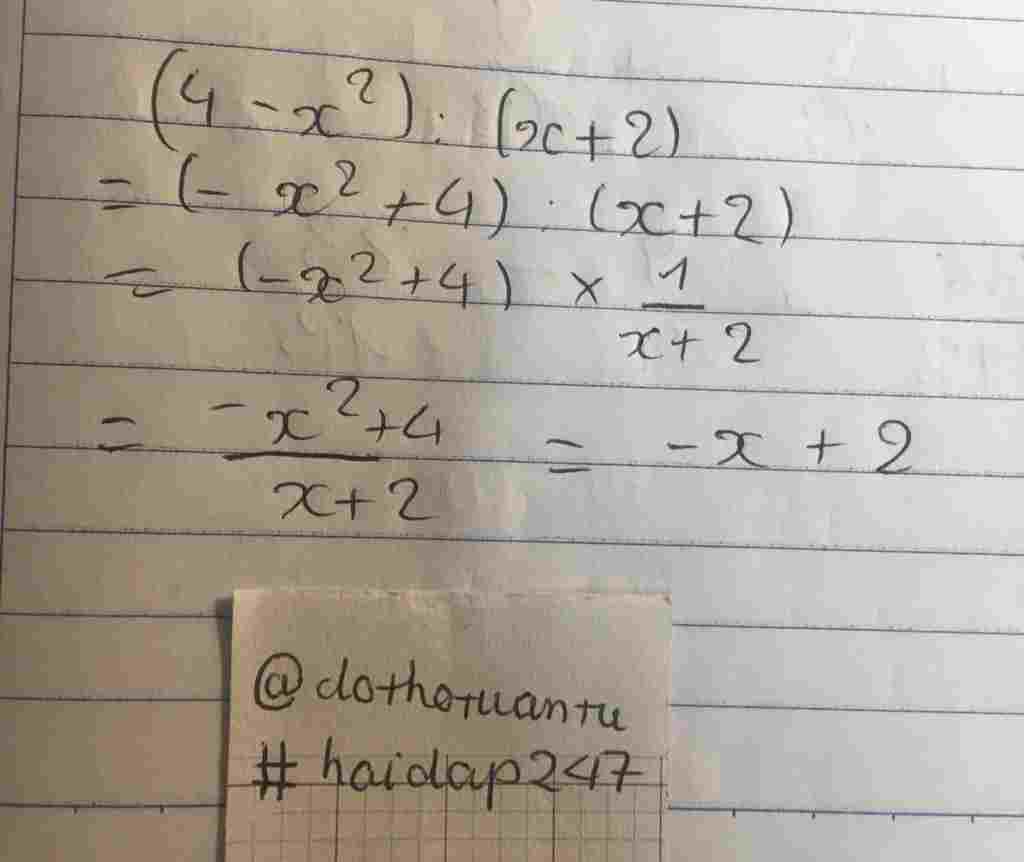 (4 - x²) : (x+2)
= (- x² + 4) : (x+2)
= (-x² + 4) × 1/(x+2)
= (-x² + 4)/(x+2) = -x + 2
@dothotuantu
# haidap247